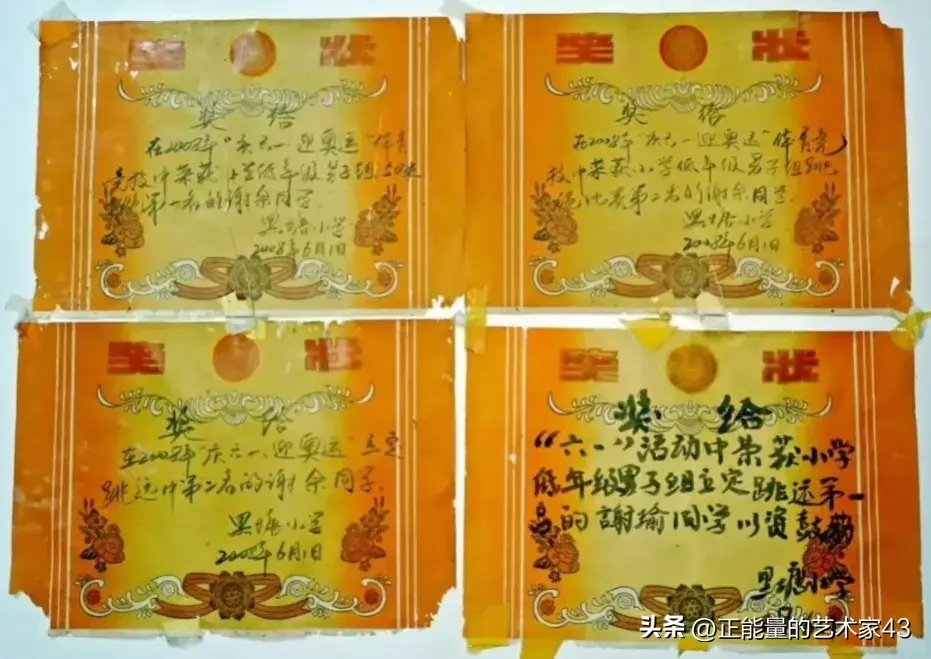 奖 状
奖 给
在2008年“庆六一迎奥运”体育
竞技中荣获小学低年级男子组50米
第一名的谢余同学.
黑塘小学
2008年6月1日
奖 状
奖 给
在2008年“庆六一迎奥运”体育竞
技中荣获小学低年级男子组跳
绳比赛第二名的谢余同学.
黑塘小学
2008年6月1日
奖 状
奖 给
在2008年“庆六一迎奥运”立定
跳远中第二名的谢余同学.
黑塘小学
2008年6月1日
奖 状
奖 给
“六一”活动中荣获小学
低年级男子组立定跳远第一
名的謝瑜同学以资鼓励
黑塘小学
头条 @正能量的艺术家43